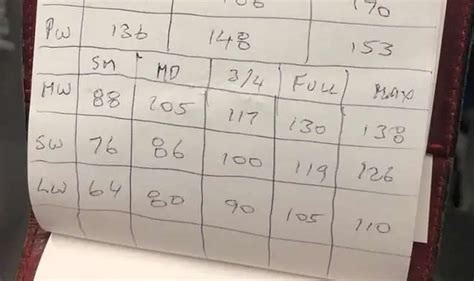 190
PW 136 148 153
SM MD 3/4 FULL MAX
MW 88 105 117 130 138
SW 76 86 100 119 126
LW 64 80 90 105 110